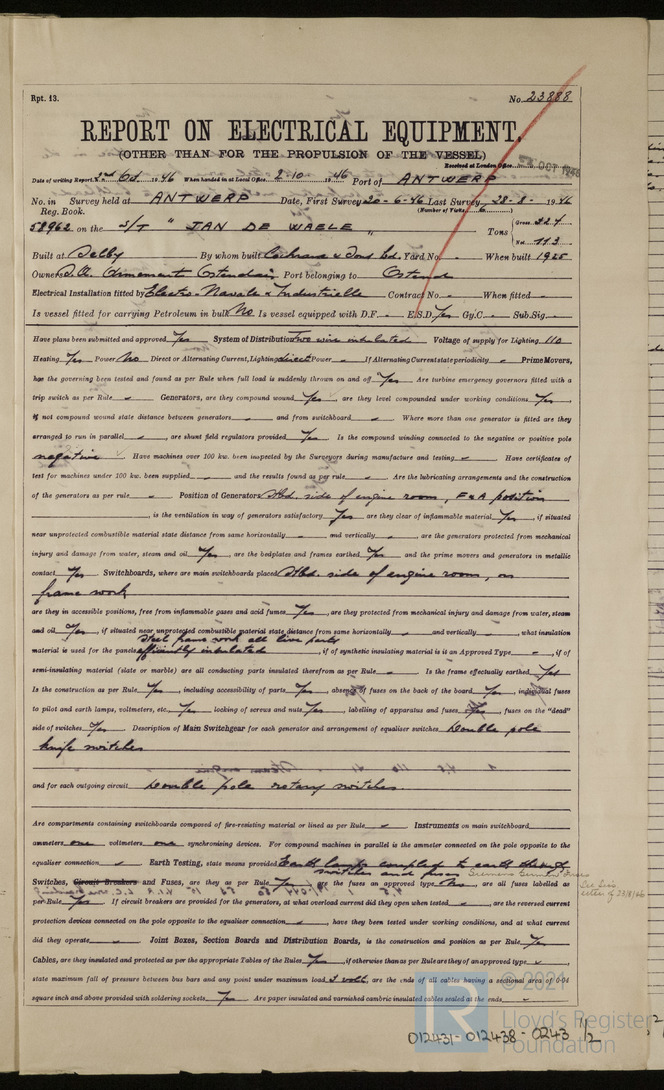 Rpt. 13. No. 23888
REPORT ON ELECTRICAL EQUIPMENT,
(OTHER THAN FOR THE PROPULSION OF THE VESSEL)
Received at London Office OCT 1946
Date of writing Report 2nd Oct. 1946 When handed in at Local Office 2-10 1946 Port of ANTWERP
No. in Survey held at ANTWERP Date, First Survey 20-6-46 Last Survey 28-8- 1946
Reg. Book. (Number of Visits )
58962 on the S/T "JAN DE WAELE" Tons { Gross 324
Net 113
Built at Selby By whom built Cochrane & Sons Ld. Yard No. - When built 1925
Owners Armement Ostendais Port belonging to Ostend
Electrical Installation fitted by Electro-Navale & Industrielle Contract No. - When fitted -
Is vessel fitted for carrying Petroleum in bulk No Is vessel equipped with D.F. - E.S.D. Yes Gy.C. - Sub.Sig. -
Have plans been submitted and approved Yes System of Distribution Two wire insulated Voltage of supply for Lighting 110
Heating Yes Power No Direct or Alternating Current, Lighting direct Power - If Alternating Current state periodicity - Prime Movers,
has the governing been tested and found as per Rule when full load is suddenly thrown on and off Yes Are turbine emergency governors fitted with a
trip switch as per Rule - Generators, are they compound wound Yes, are they level compounded under working conditions Yes,
if not compound wound state distance between generators - and from switchboard - Where more than one generator is fitted are they
arranged to run in parallel -, are shunt field regulators provided Yes Is the compound winding connected to the negative or positive pole
negative Have machines over 100 kw. been inspected by the Surveyors during manufacture and testing - Have certificates of
test for machines under 100 kw. been supplied - and the results found as per rule - Are the lubricating arrangements and the construction
of the generators as per rule - Position of Generators Stbd. side of engine room, F & A position
, is the ventilation in way of generators satisfactory Yes are they clear of inflammable material Yes, if situated
near unprotected combustible material state distance from same horizontally - and vertically -, are the generators protected from mechanical
injury and damage from water, steam and oil Yes, are the bedplates and frames earthed Yes and the prime movers and generators in metallic
contact Yes Switchboards, where are main switchboards placed Stbd. side of engine room, on
frame work
are they in accessible positions, free from inflammable gases and acid fumes Yes, are they protected from mechanical injury and damage from water, steam
and oil Yes, if situated near unprotected combustible material state distance from same horizontally - and vertically -, what insulation
material is used for the panels Steel frame work all live parts efficiently insulated, if of synthetic insulating material is it an Approved Type -, if of
semi-insulating material (slate or marble) are all conducting parts insulated therefrom as per Rule - Is the frame effectually earthed Yes
Is the construction as per Rule Yes, including accessibility of parts Yes, absence of fuses on the back of the board Yes, individual fuses
to pilot and earth lamps, voltmeters, etc. Yes locking of screws and nuts Yes, labelling of apparatus and fuses Yes, fuses on the "dead"
side of switches Yes. Description of Main Switchgear for each generator and arrangement of equaliser switches Double pole
knife switches
and for each outgoing circuit Double pole rotary switches
Are compartments containing switchboards composed of fire-resisting material or lined as per Rule - Instruments on main switchboard
ammeters one voltmeters one synchronising devices. For compound machines in parallel is the ammeter connected on the pole opposite to the
equaliser connection - Earth Testing, state means provided Earth lamps coupled to earth through
switches and fuses
Switches, Circuit Breakers and Fuses, are they as per Rule Yes, the fuses an approved type Yes, are all fuses labelled as
per Rule Yes If circuit breakers are provided for the generators, at what overload current did they open when tested -, are the reversed current
protection devices connected on the pole opposite to the equaliser connection -, have they been tested under working conditions, and at what current
did they operate - Joint Boxes, Section Boards and Distribution Boards, is the construction and position as per Rule Yes
Cables, are they insulated and protected as per the appropriate Tables of the Rules Yes, if otherwise than as per Rule are they of an approved type -,
state maximum fall of pressure between bus bars and any point under maximum load 3 volts, are the ends of all cables having a sectional area of 0·04
square inch and above provided with soldering sockets Yes Are paper insulated and varnished cambric insulated cables sealed at the ends -
© 2021
Lloyd's Register
Foundation
012431-012438-0243 1/2